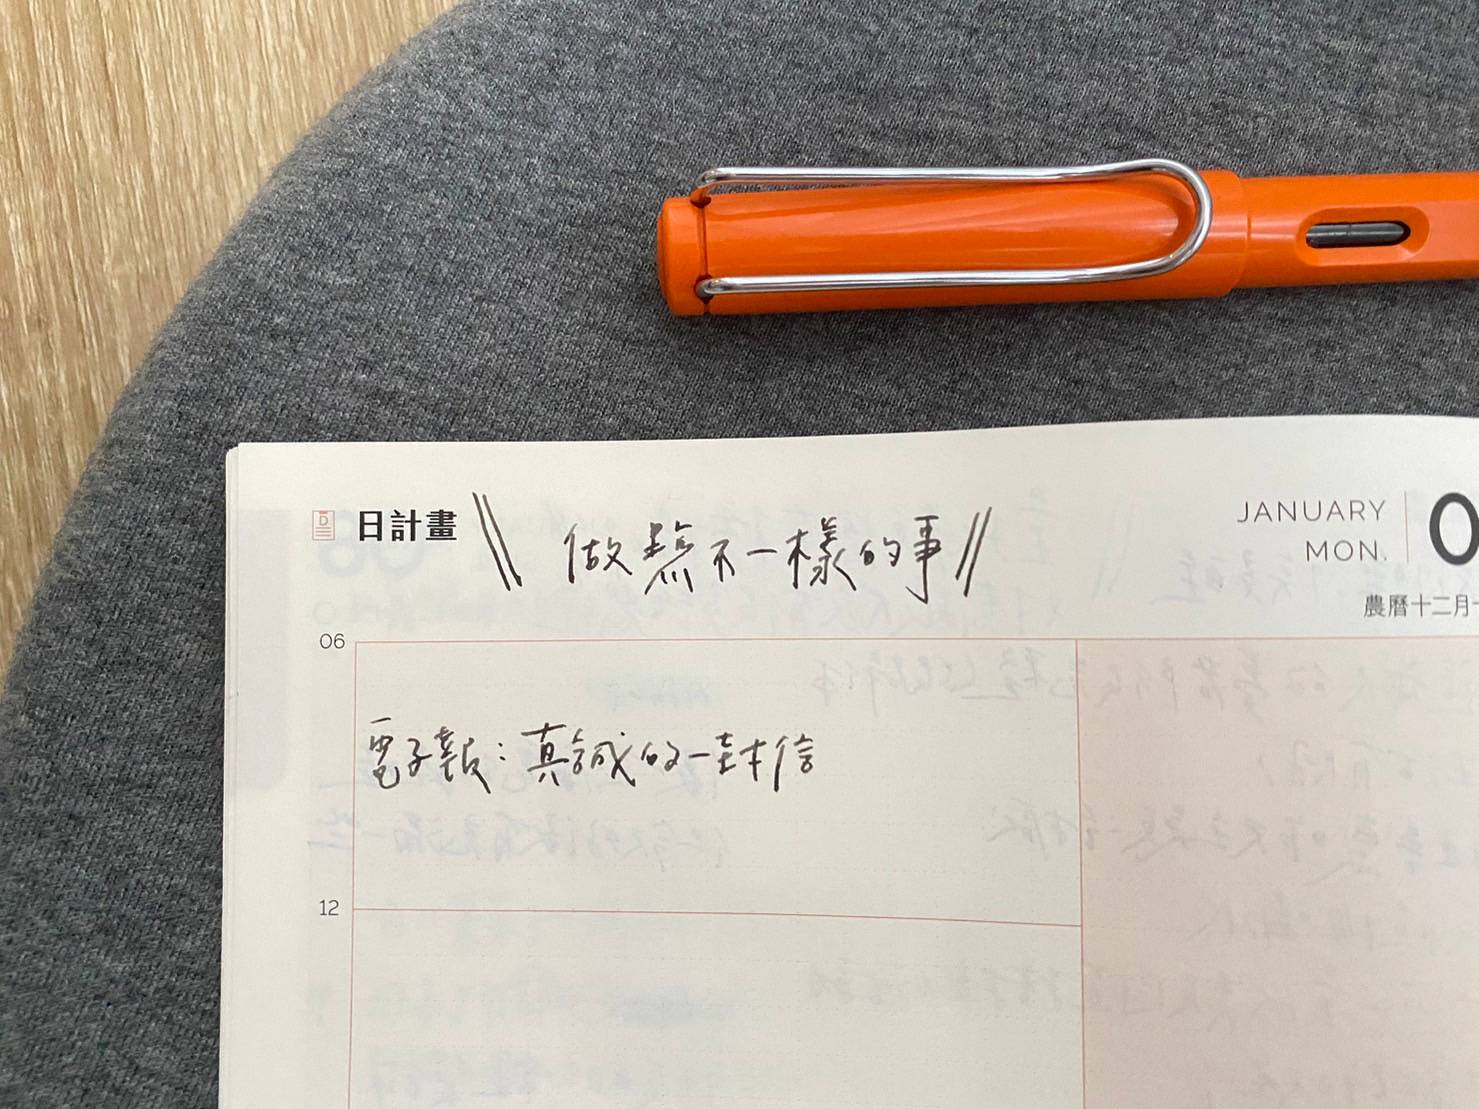 日計畫 \\ 做點不一樣的事 //
JANUARY
MON.
0
農曆十二月十
06
電子報：真誠的一封信
12